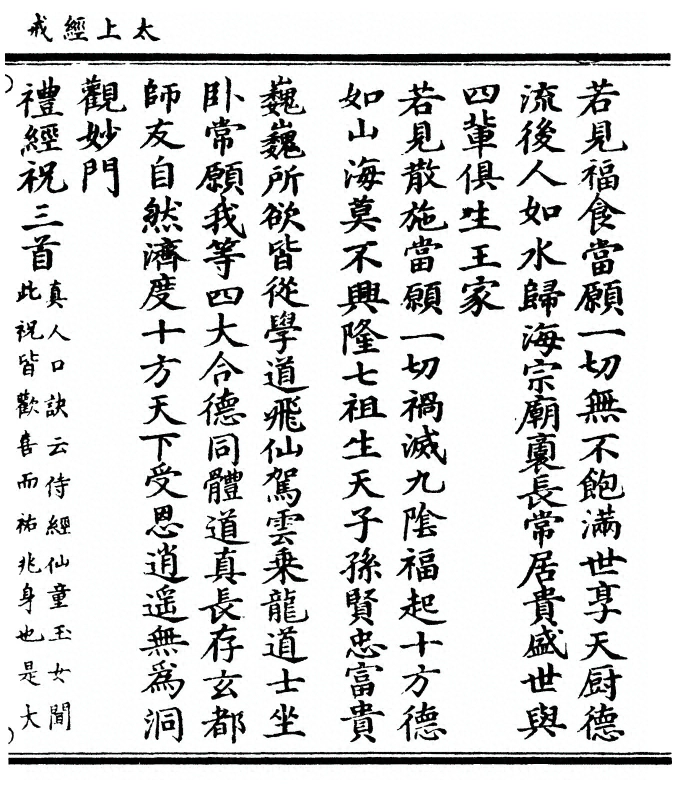 太上經戒
若見福食當願一切無不飽滿世享天厨德
流後人如水歸海宗廟裏長常居貴盛世與
四輩俱生王家
若見散施當願一切禍滅九陰福起十方德
如山海莫不興隆七祖生天子孫賢忠富貴
巍巍所欲皆從學道飛仙駕雲乘龍道士坐
卧常願我等四大合德同體道真長存玄都
師友自然濟度十方天下受恩逍遥無爲洞
觀妙門
禮經祝三首
真人口訣云侍經仙童玉女聞
此祝皆歡喜而祐兆身也是大